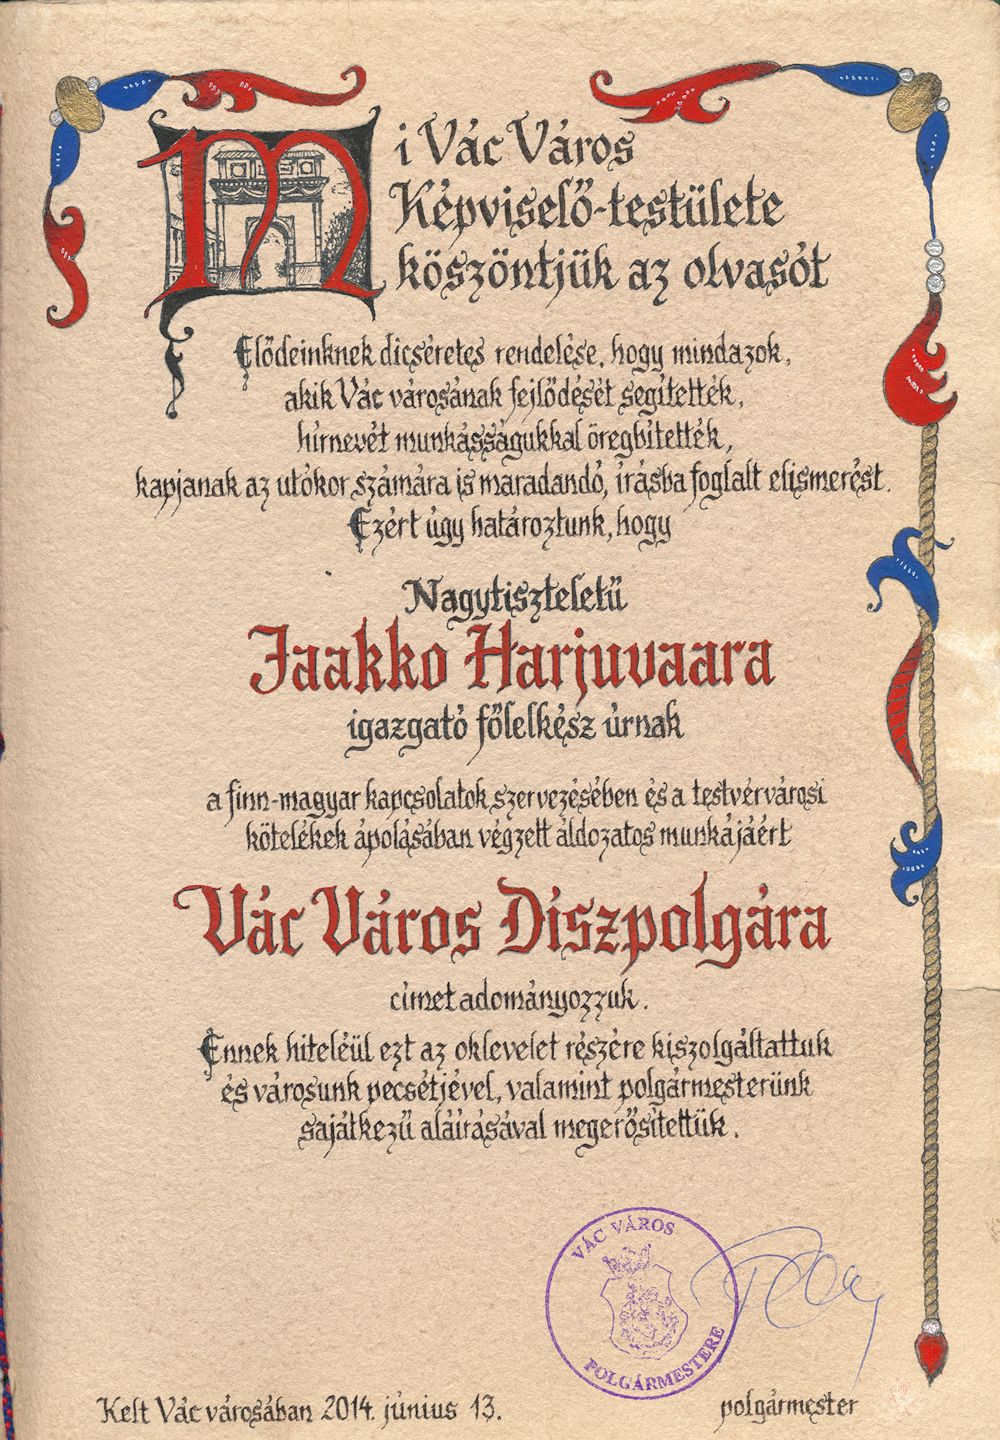 Mi Vác Város
Képviselő-testülete
köszöntjük az olvasót
Elődeinknek dicséretes rendelése, hogy mindazok,
akik Vác városának fejlődését segítették,
hírnevét munkásságukkal öregbítették,
kapjanak az utókor számára is maradandó, írásba foglalt elismerést.
Ezért úgy határoztunk, hogy
Nagytiszteletű
Jaakko Harjuvaara
igazgató főlelkész úrnak
a finn-magyar kapcsolatok szervezésében és a testvérvárosi
kötelékek ápolásában végzett áldozatos munkájáért
Vác Város Díszpolgára
címet adományozzuk.
Ennek hiteléül ezt az oklevelet részére kiszolgáltattuk
és városunk pecsétjével, valamint polgármesterünk
sajátkezű aláírásával megerősítettük.
VÁC VÁROS
POLGÁRMESTERE
Kelt Vác városában 2014. június 13.
polgármester